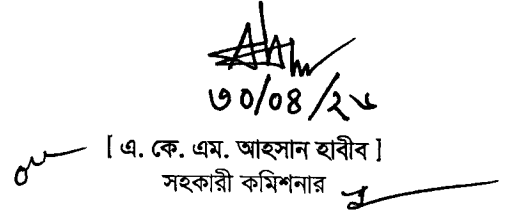 ৩০/০৪/২৬
[ এ. কে. এম. আহসান হাবীব ]
সহকারী কমিশনার